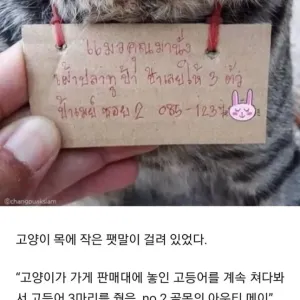 แมวคุณมานั่ง
เฝ้าปลาทูป้า ป้าเลยให้ 3 ตัว
ป้าเมย์ ซอย 2 085-123
@changpuaksiam
고양이 목에 작은 팻말이 걸려 있었다.
"고양이가 가게 판매대에 놓인 고등어를 계속 쳐다봐
서 고등어 3마리를 줬음. no.2 골목의 아운티 메이"